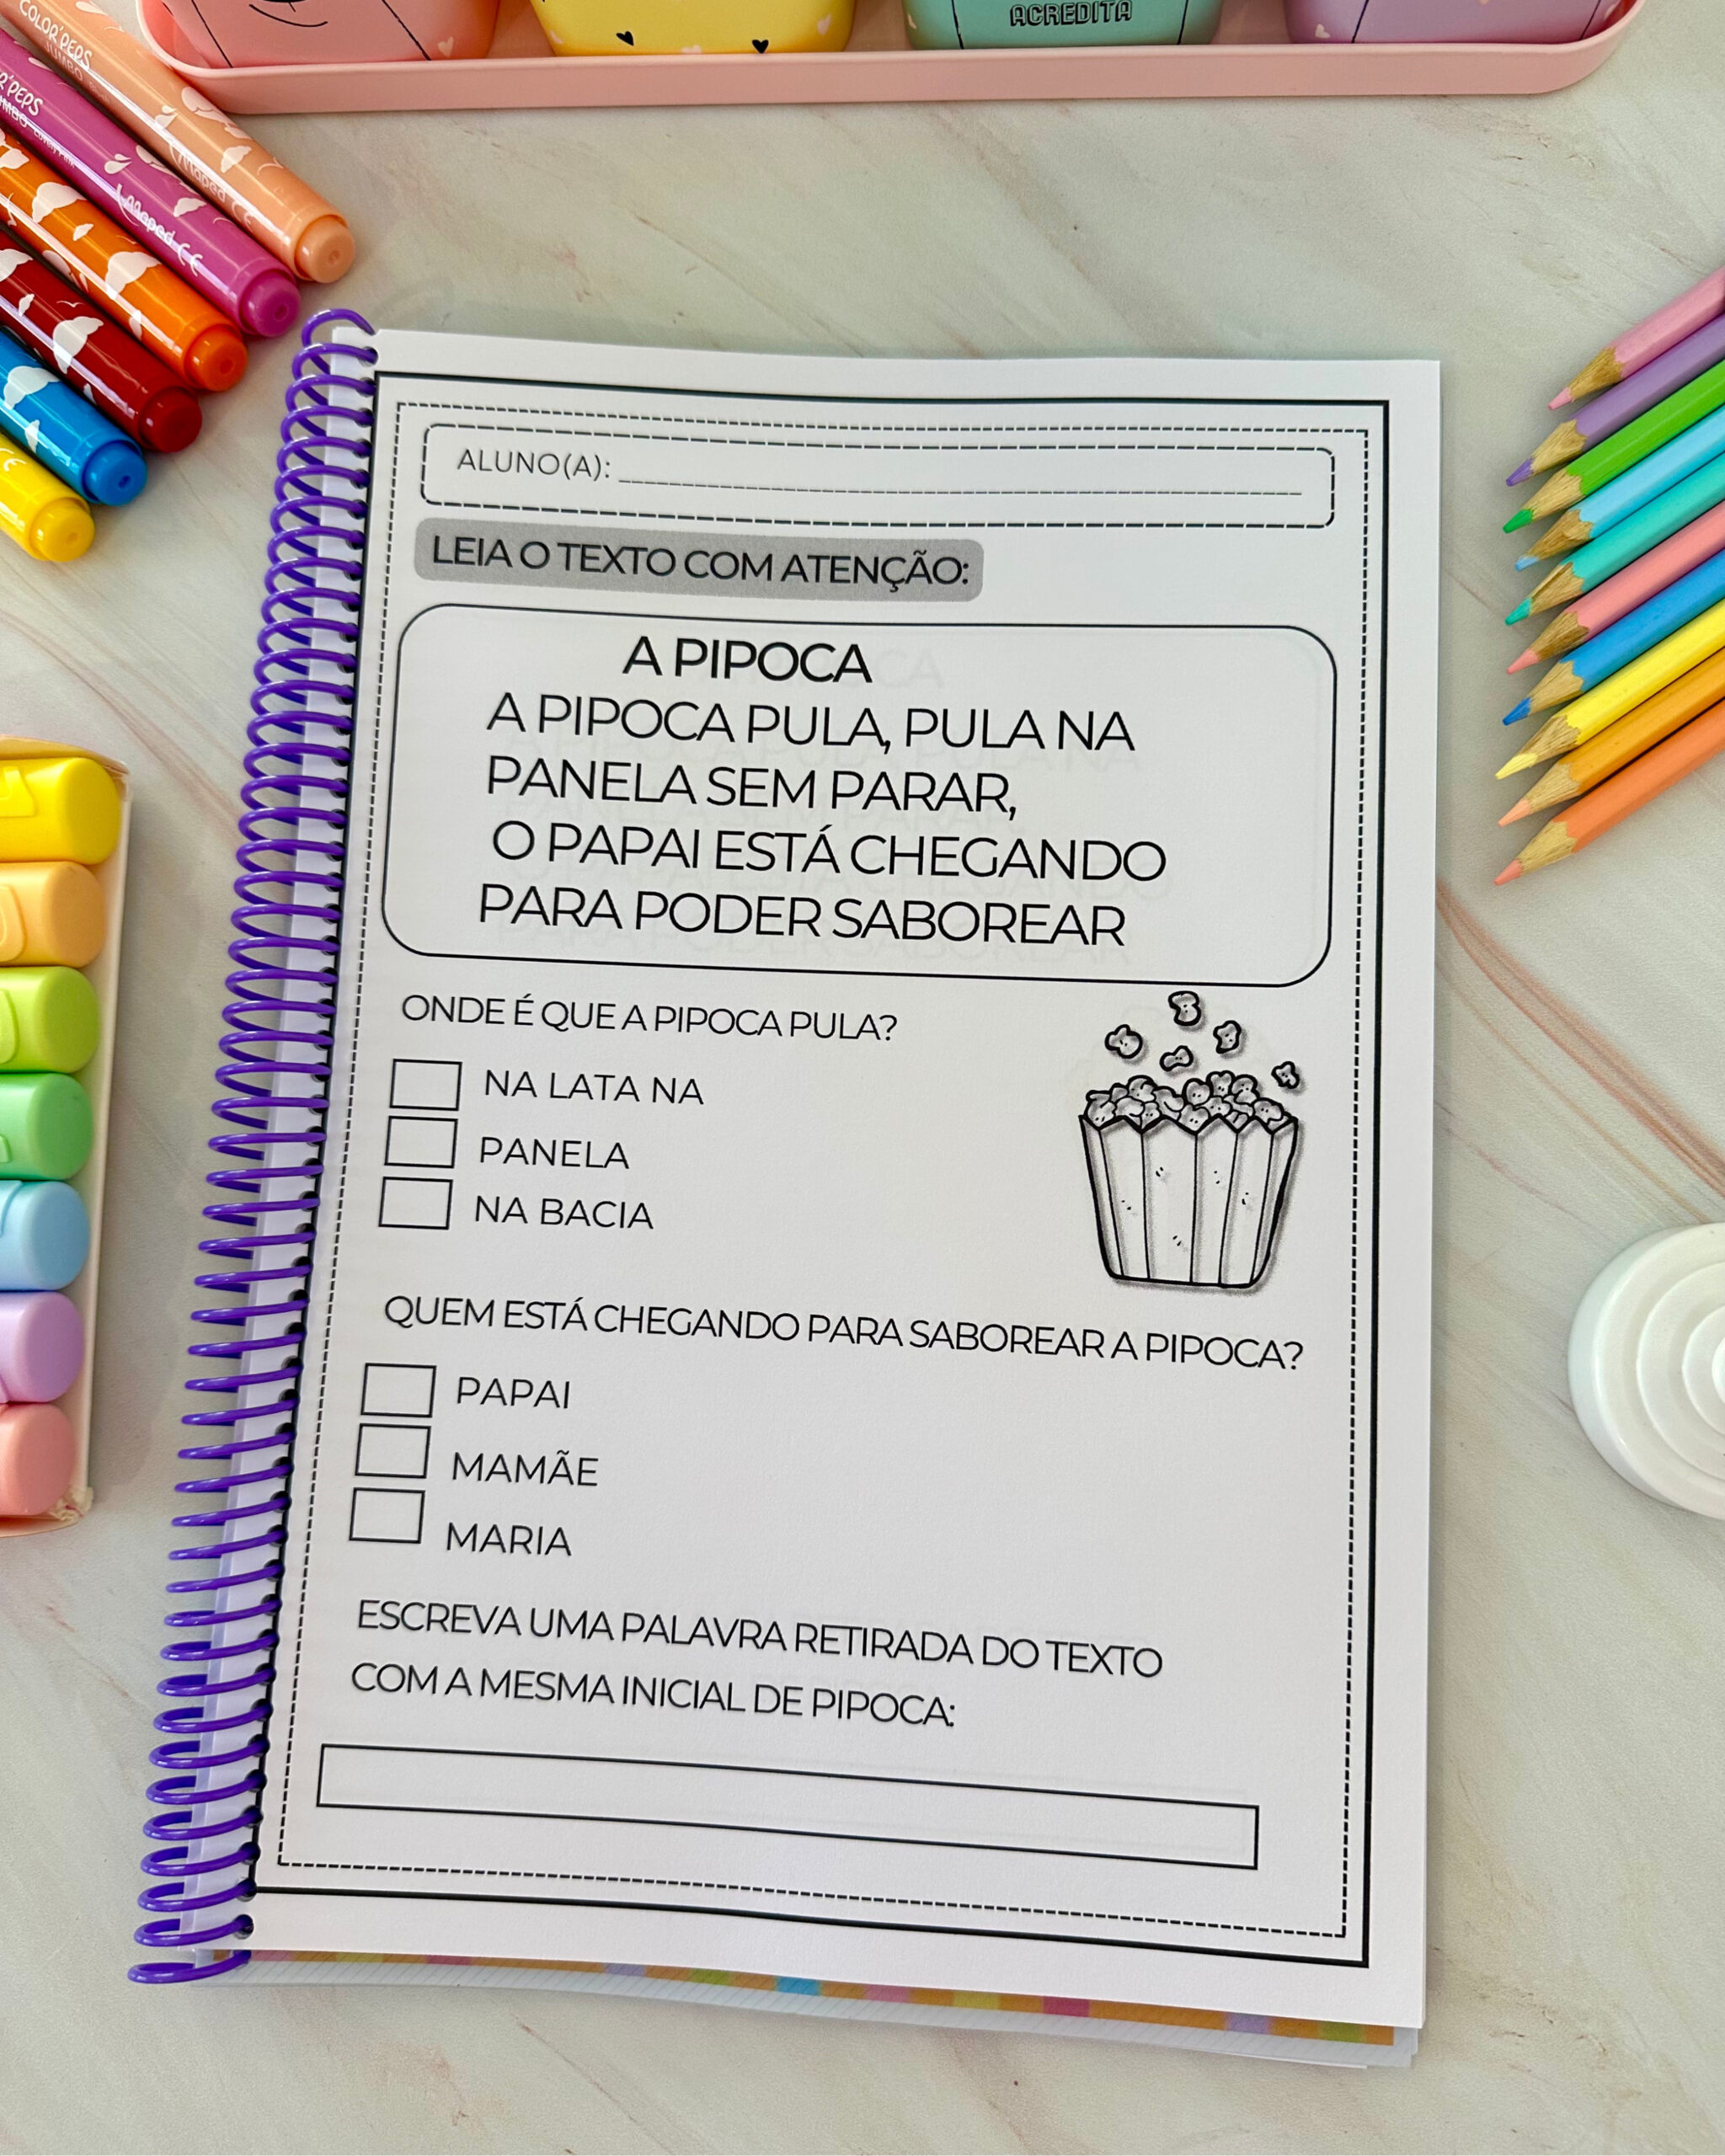 ACREDITA
COLOR'PEPS
JUMBO
Maped CE
Maped CE
ALUNO(A):
LEIA O TEXTO COM ATENÇÃO:
A PIPOCA
A PIPOCA PULA, PULA NA
PANELA SEM PARAR,
O PAPAI ESTÁ CHEGANDO
PARA PODER SABOREAR
ONDE É QUE A PIPOCA PULA?
NA LATA NA
PANELA
NA BACIA
QUEM ESTÁ CHEGANDO PARA SABOREAR A PIPOCA?
PAPAI
MAMÃE
MARIA
ESCREVA UMA PALAVRA RETIRADA DO TEXTO
COM A MESMA INICIAL DE PIPOCA: